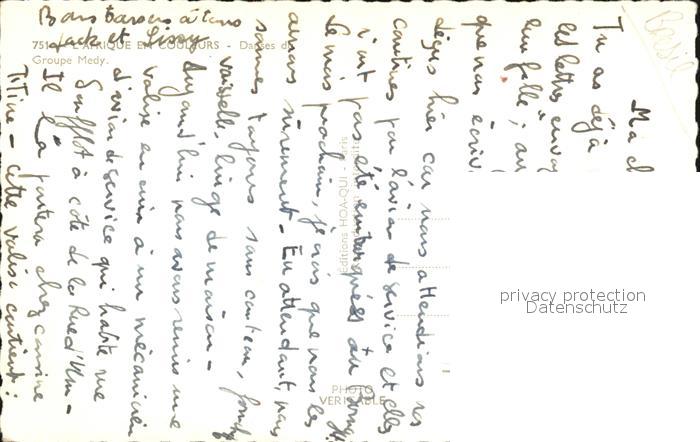 Brésil
Ma
Tu as déjà
les lettres envoy
leur fille ; au
que nous écriv
déçus hier car nous attendions nos
cantines par l'avion de service et elles
n'ont pas été embarquées au
le mois prochain, je crois que nous les
aurons sûrement. En attendant, nous
sommes toujours sans couteau, fourch
vaisselle, linge de maison.
Aujourd'hui nous avons remis une
valise en cuir à un mécanicien
d'avion de service qui habite rue
Soufflot à côté de la Rue d'Ulm.
Il la portera chez
Titine. Cette valise contient :
Bons baisers à tous
Jack et
751 L'AFRIQUE EN COULEURS - Danses d
Groupe Medy.
Editions HOA-QUI - Paris
PHOTO
VERITABLE
privacy protection
Datenschutz